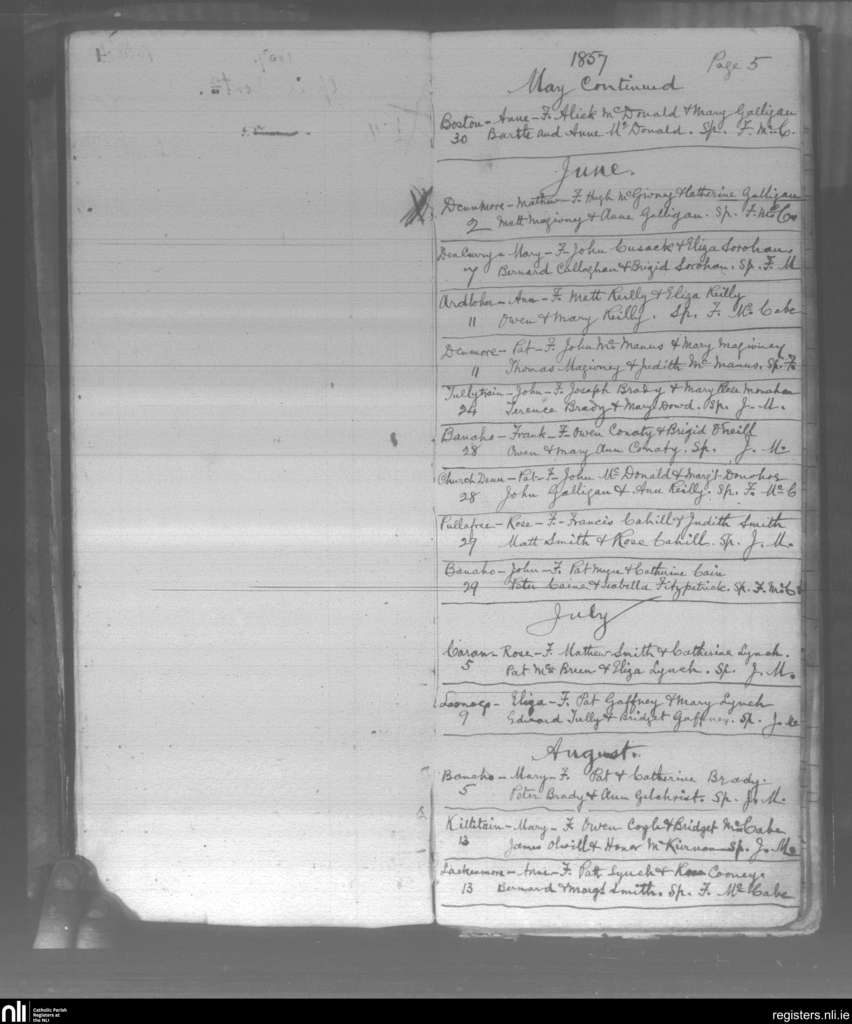 1857
Page 5
May Continued
Boston - Anne - F. Alick McDonald & Mary Galligan
30 Bartle and Anne McDonald. Sp. F. McC.
June.
Dennmore - Mathew - F. Hugh McGivney & Catherine Galligan
2 Matt Magivney & Anne Galligan. Sp. F. McC
Mary - F. John Cusack & Eliza Sorohan.
7 Bernard Callaghan & Brigid Sorohan. Sp. F. M
Ardloher - Ann - F. Matt Reilly & Eliza Reilly
11 Owen & Mary Reilly. Sp. F. McCabe
Denmore - Pat - F. John McManus & Mary Magivney
11 Thomas Magivney & Judith McManus. Sp. F.
Tullytrain - John - F. Joseph Brady & Mary Rose Monahan
24 Terence Brady & Mary Dowd. Sp. J. M.
Banaho - Frank - F. Owen Conaty & Brigid O'neill
28 Owen & Mary Ann Conaty. Sp. J. Mc
Church Denn - Pat - F. John McDonald & Margt Donohoe
28 John Galligan & Ann Reilly. Sp. F. McC
Pullafree - Rose - F. Francis Cahill & Judith Smith
27 Matt Smith & Rose Cahill. Sp. J. M.
Banaho - John - F. Pat & Catherine Cain
29 Peter Caine & Isabella Fitzpatrick. Sp. F. McC
July
Caran - Rose - F. Mathew Smith & Catherine Lynch.
5 Pat McBreen & Eliza Lynch. Sp. J. M.
Eliza - F. Pat Gaffney & Mary Lynch
9 Edward Tully & Bridget Gaffney. Sp. J.
August.
Banaho - Mary - F. Pat & Catherine Brady.
5 Peter Brady & Ann Gilchrist. Sp. J. M.
Killitain - Mary - F. Owen Coyle & Bridget McCabe
13 James & Honor McKiernan Sp. J. Mc
Lackenmore - Anne - F. Patt Lynch & Rose Cooney.
13 Bernard & Margt Smith. Sp. F. McCabe
nli
Catholic Parish
Registers at
the NLI
registers.nli.ie